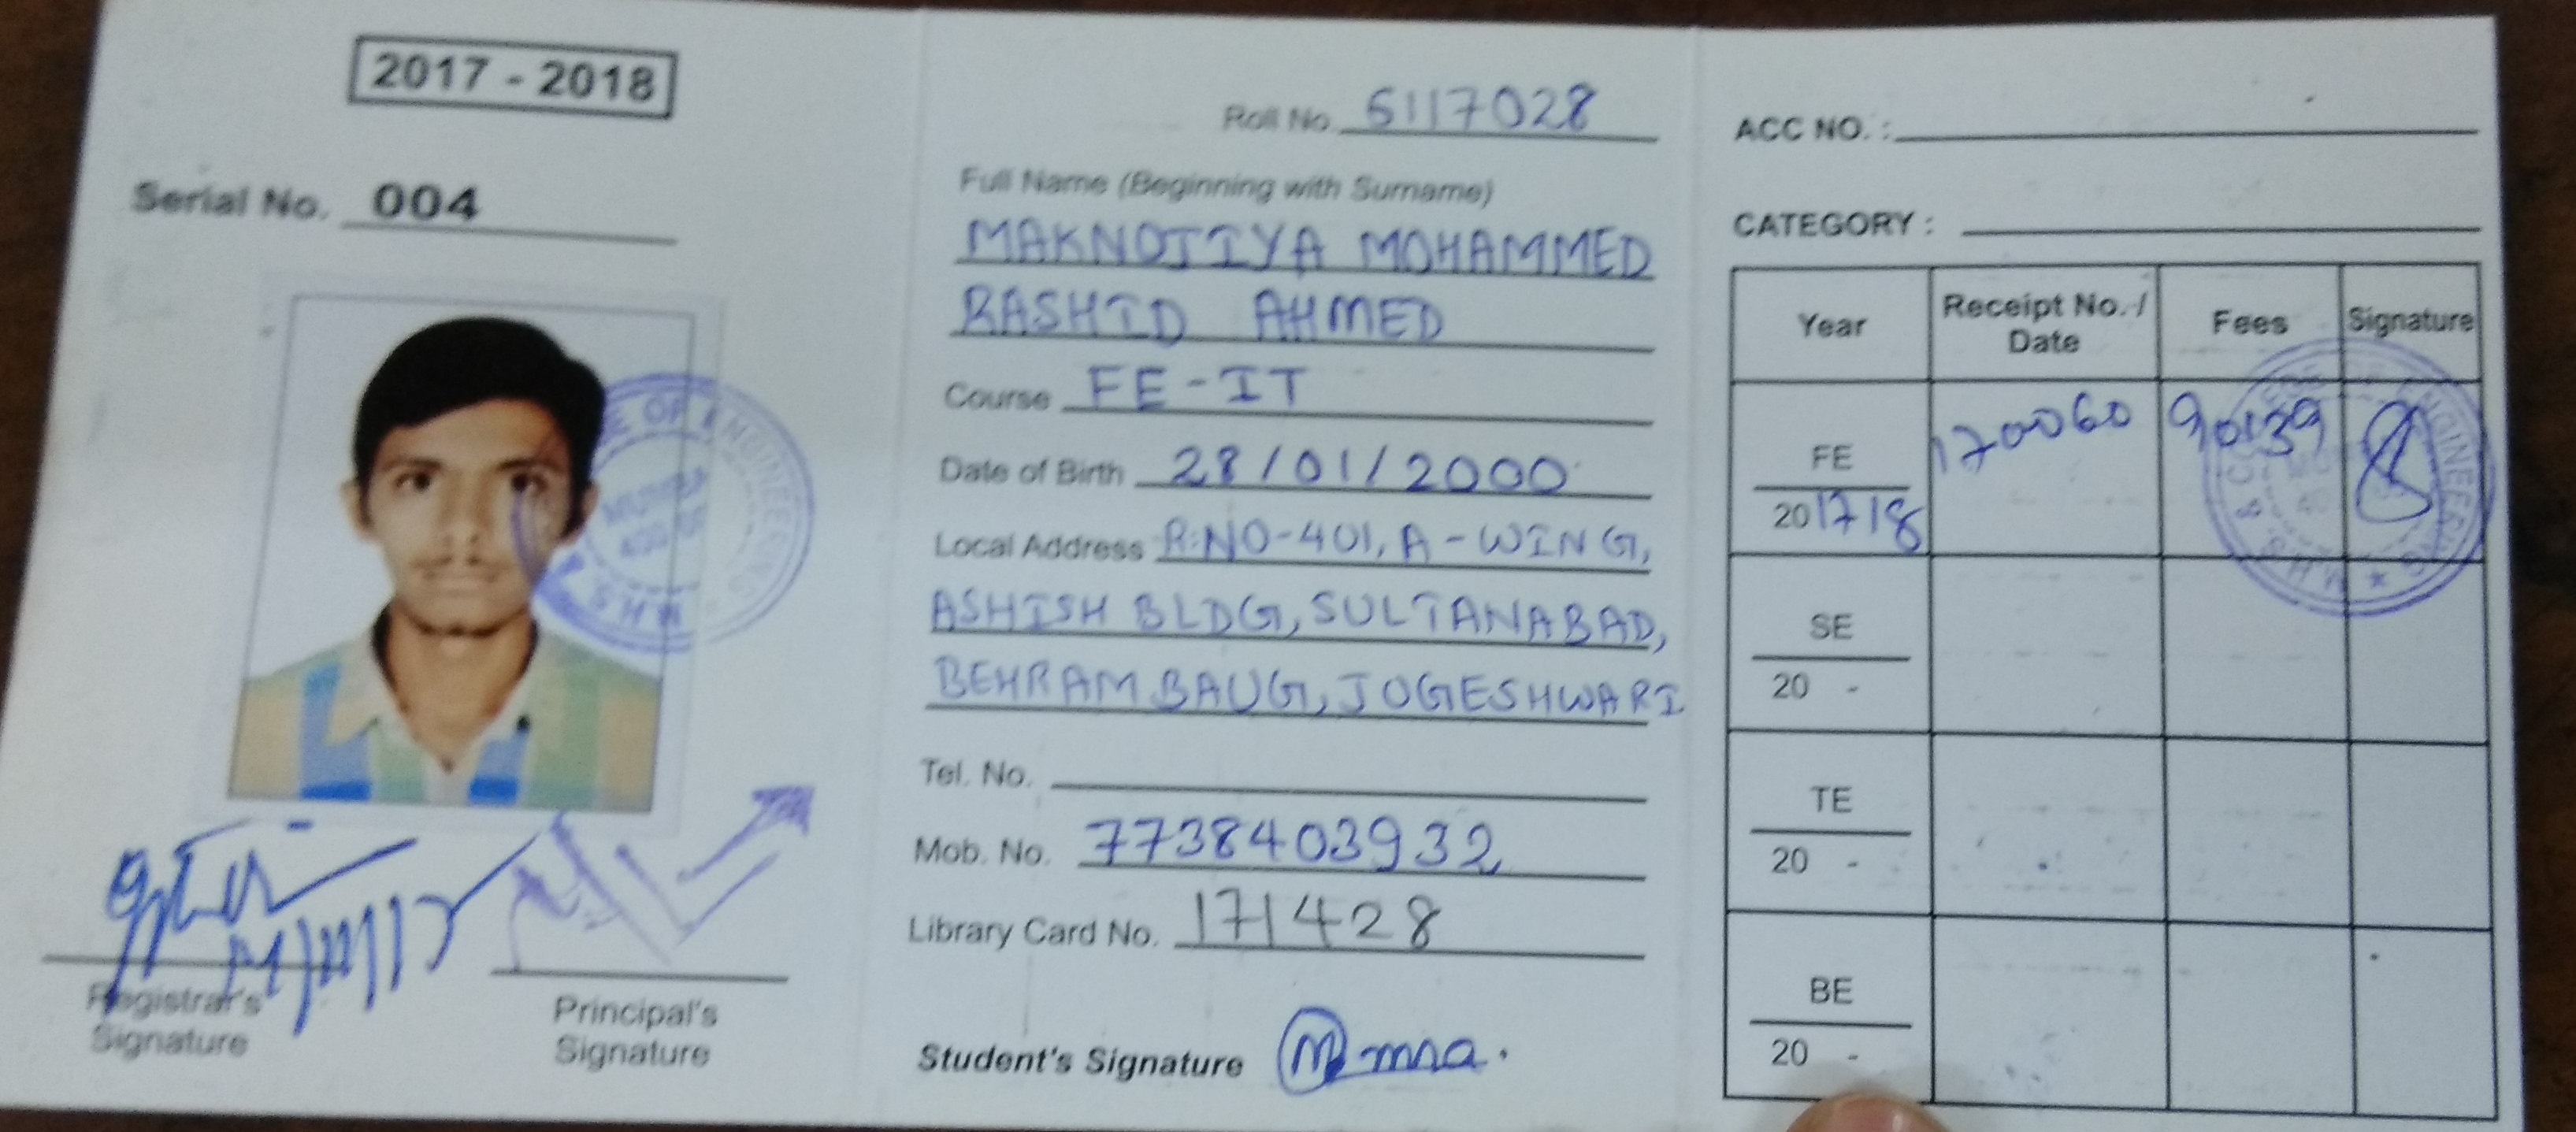 2017 - 2018
Serial No. 004
Registrar's
Signature
Principal's
Signature
Roll No. 5117028
Full Name (Beginning with Surname)
MAKNOJIYA MOHAMMED
RASHID AHMED
Course FE-IT
Date of Birth 28/01/2000
Local Address R.NO-401, A-WING,
ASHISH BLDG, SULTANABAD,
BEHRAM BAUG, JOGESHWARI
Tel. No.
Mob. No. 7738403932
Library Card No. 171428
Student's Signature
ACC NO. :
CATEGORY :
Year Receipt No. / Date Fees Signature
FE 170060 90139
2017 18
SE
20 -
TE
20 -
BE
20 -